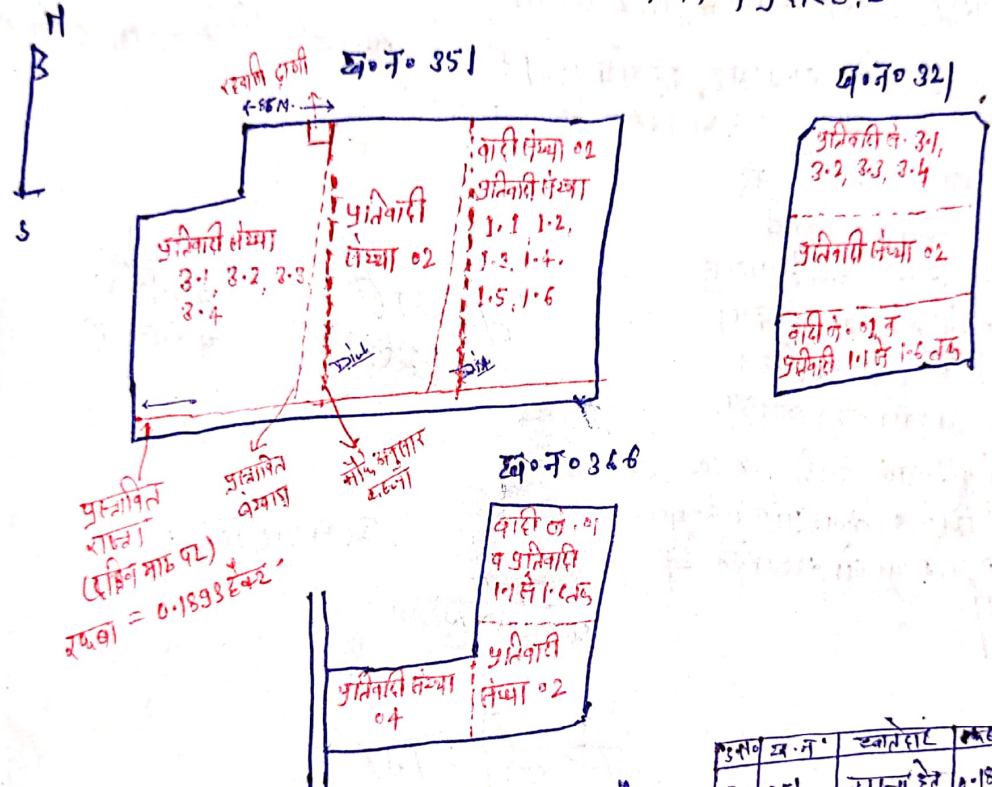 N
S
ख॰ न॰ 351
ख॰ न॰ 321
प्रतिवादी संख्या
3.1, 3.2, 3.3,
3.4
प्रतिवादी
संख्या 02
वादी संख्या 02
प्रतिवादी संख्या
1.1, 1.2,
1.3, 1.4,
1.5, 1.6
प्रतिवादी सं. 3.1,
3.2, 3.3, 3.4
प्रतिवादी संख्या 02
वादी सं. 01 व
प्रतिवादी 1.1 से 1.6 तक
प्रस्तावित
रास्ता
(दक्षिण माठ पर)
रकबा = 0.1893 हैक्टर
प्रस्तावित
मौके अनुसार
कब्जा
ख॰ न॰ 366
वादी सं. 01
व प्रतिवादी
1.1 से 1.6 तक
प्रतिवादी
संख्या 02
प्रतिवादी संख्या
04
ख. न.
खातेदार